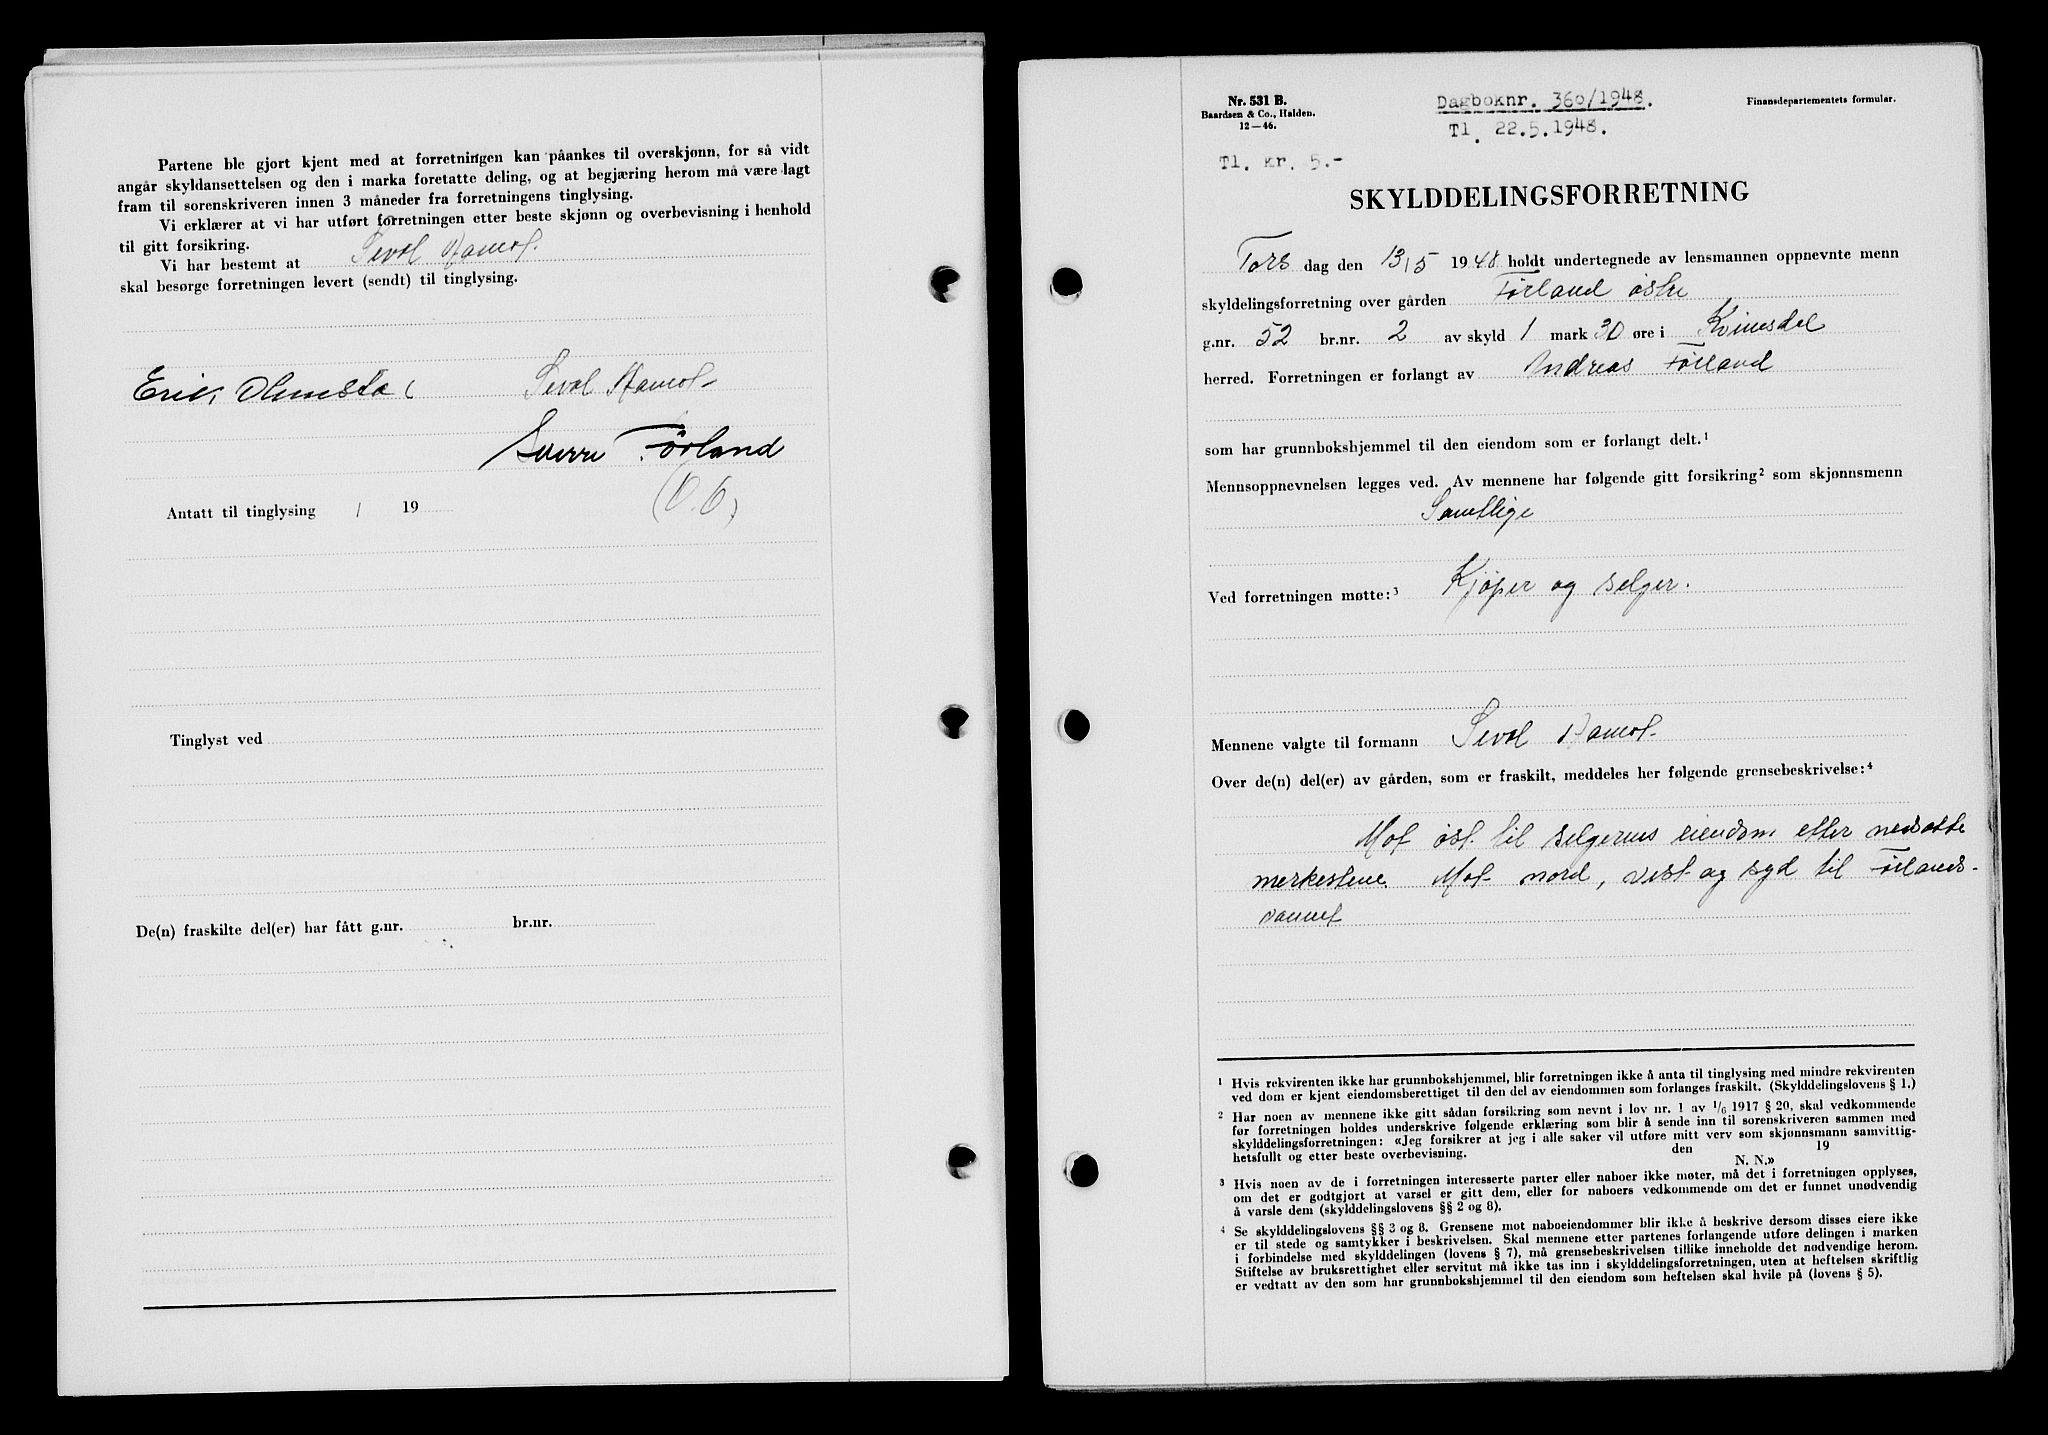 Partene ble gjort kjent med at forretningen kan påankes til overskjønn, for så vidt
angår skyldansettelsen og den i marka foretatte deling, og at begjæring herom må være lagt
fram til sorenskriveren innen 3 måneder fra forretningens tinglysing.
Vi erklærer at vi har utført forretningen etter beste skjønn og overbevisning i henhold
til gitt forsikring.
Vi har bestemt at Sevol
skal besørge forretningen levert (sendt) til tinglysing.
Sevol
Sverre Förland
(O.O.)
Antatt til tinglysing / 19
Tinglyst ved
De(n) fraskilte del(er) har fått g.nr. br.nr.
Nr. 531 B.
Baardsen & Co., Halden.
12—46.
Dagboknr. 360/1948.
Tl. 22.5.1948.
Finansdepartementets formular.
Tl. kr. 5.-
SKYLDDELINGSFORRETNING
Tors dag den 13/5 1948 holdt undertegnede av lensmannen oppnevnte menn
skyldelingsforretning over gården Førland østre
g.nr. 52 br.nr. 2 av skyld 1 mark 30 øre i Kvinesdal
herred. Forretningen er forlangt av Andreas Førland
som har grunnbokshjemmel til den eiendom som er forlangt delt.¹
Mennsoppnevnelsen legges ved. Av mennene har følgende gitt forsikring² som skjønnsmenn
Samtlige
Ved forretningen møtte:³ Kjøper og selger.
Mennene valgte til formann Sevol
Over de(n) del(er) av gården, som er fraskilt, meddeles her følgende grensebeskrivelse:⁴
Mot øst til selgerens eiendom etter nedsatte
merkestene. Mot nord, vest og syd til Førlands-
vannet
¹ Hvis rekvirenten ikke har grunnbokshjemmel, blir forretningen ikke å anta til tinglysing med mindre rekvirenten
ved dom er kjent eiendomsberettiget til den del av eiendommen som forlanges fraskilt. (Skylddelingslovens § 1.)
² Har noen av mennene ikke gitt sådan forsikring som nevnt i lov nr. 1 av 1/6 1917 § 20, skal vedkommende
før forretningen holdes underskrive følgende erklæring som blir å sende inn til sorenskriveren sammen med
skylddelingsforretningen: «Jeg forsikrer at jeg i alle saker vil utføre mitt verv som skjønnsmann samvittig-
hetsfullt og etter beste overbevisning. den 19
N. N.»
³ Hvis noen av de i forretningen interesserte parter eller naboer ikke møter, må det i forretningen opplyses,
om det er godtgjort at varsel er gitt dem, eller for naboers vedkommende om det er funnet unødvendig
å varsle dem (skylddelingslovens §§ 2 og 8).
⁴ Se skylddelingslovens §§ 3 og 8. Grensene mot naboeiendommer blir ikke å beskrive dersom disses eiere ikke
er til stede og samtykker i beskrivelsen. Skal mennene etter partenes forlangende utføre delingen i marken
i forbindelse med skylddelingen (lovens § 7), må grensebeskrivelsen tillike inneholde det nødvendige herom.
Stiftelse av bruksrettighet eller servitut må ikke tas inn i skylddelingsforretningen, uten at heftelsen skriftlig
er vedtatt av den som har grunnbokshjemmel til den eiendom som heftelsen skal hvile på (lovens § 5).